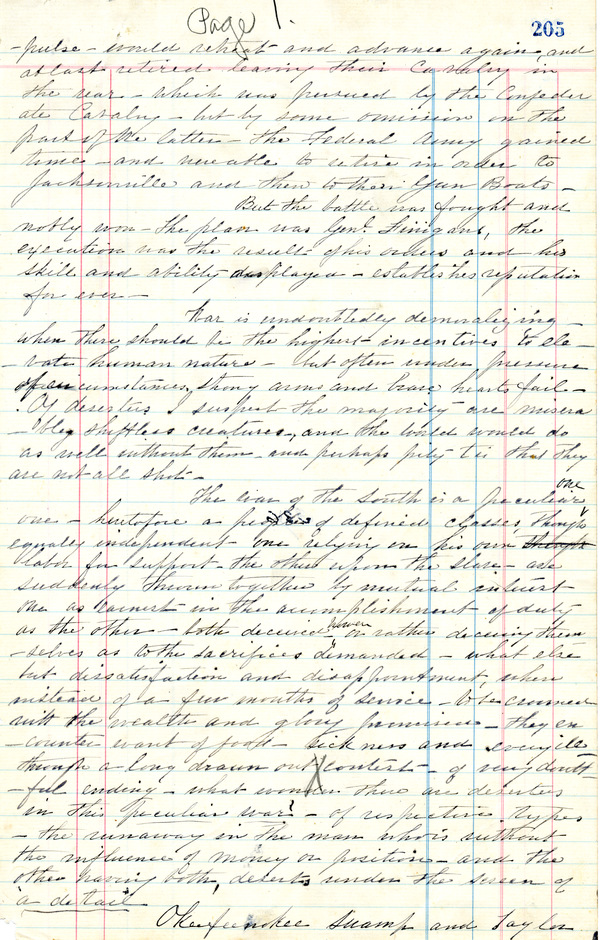 Page 1.
205
-pulse - would retreat and advance again, and
at last retired leaving their Cavalry in
the rear - which was pursued by the Confeder
ate Cavalry - but by some omission on the
part of the latter - the Federal Army gained
time - and were able to retire in order to
Jacksonville and then to their Gun Boats -
But the battle was fought and
nobly won - the plan was Genl. Finigans, the
execution was the result of his orders and his
skill and ability displayed - establishes reputation
for ever -
War is undoubtedly demoralizing -
when there should be the highest incentives to ele
- vate human nature - but often under pressure
of circumstances, strong arms and brave hearts fail -
. Of deserters I suspect the majority are misera
- ble shiftless creatures, and the world would do
as well without them - and perhaps pity tis that they
are not all shot -
The war of the South is a peculiar
one
one - heretofore a people of defined classes, though
equally independent one relying on his own though
labor for support the other upon the slave - are
suddenly thrown together by mutual interest
one as earnest in the accomplishment of duty
as the other - both deceived or rather deceiving them
-selves as to the sacrifices demanded - what else
but dissatisfaction and disappointment, when
instead of a few months of service - to be crowned
with the wealth and glory promised - they en
- counter want of food - sickness and every ill
through a long drawn out contest - of very doubt
- ful ending - what wonder there are deserters
in this "peculiar war" - of respective types
- the runaway in the man who is without
the influence of money or position - and the
other having both, deserts under the screen of
"a detail"
Okeefeenokee Swamp and Taylor